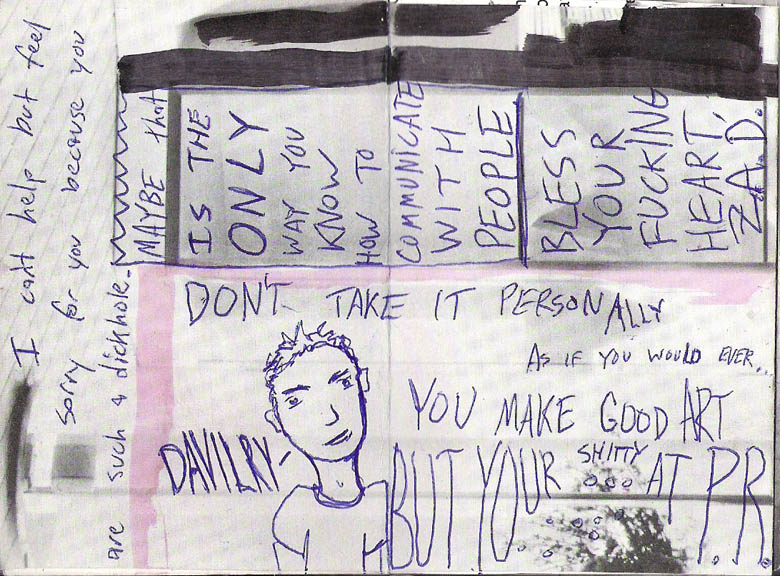 I can't help but feel
sorry for you because you
are such a dickhole.
MAYBE that
IS THE
ONLY
WAY YOU
KNOW
HOW TO
COMMUNICATE
WITH
PEOPLE
BLESS
YOUR
FUCKING
HEART,
Z.A.D.
DON'T TAKE IT PERSONALLY
AS IF YOU WOULD EVER...
YOU MAKE GOOD ART
DAVILRY-
BUT YOUR SHITTY AT P.R.